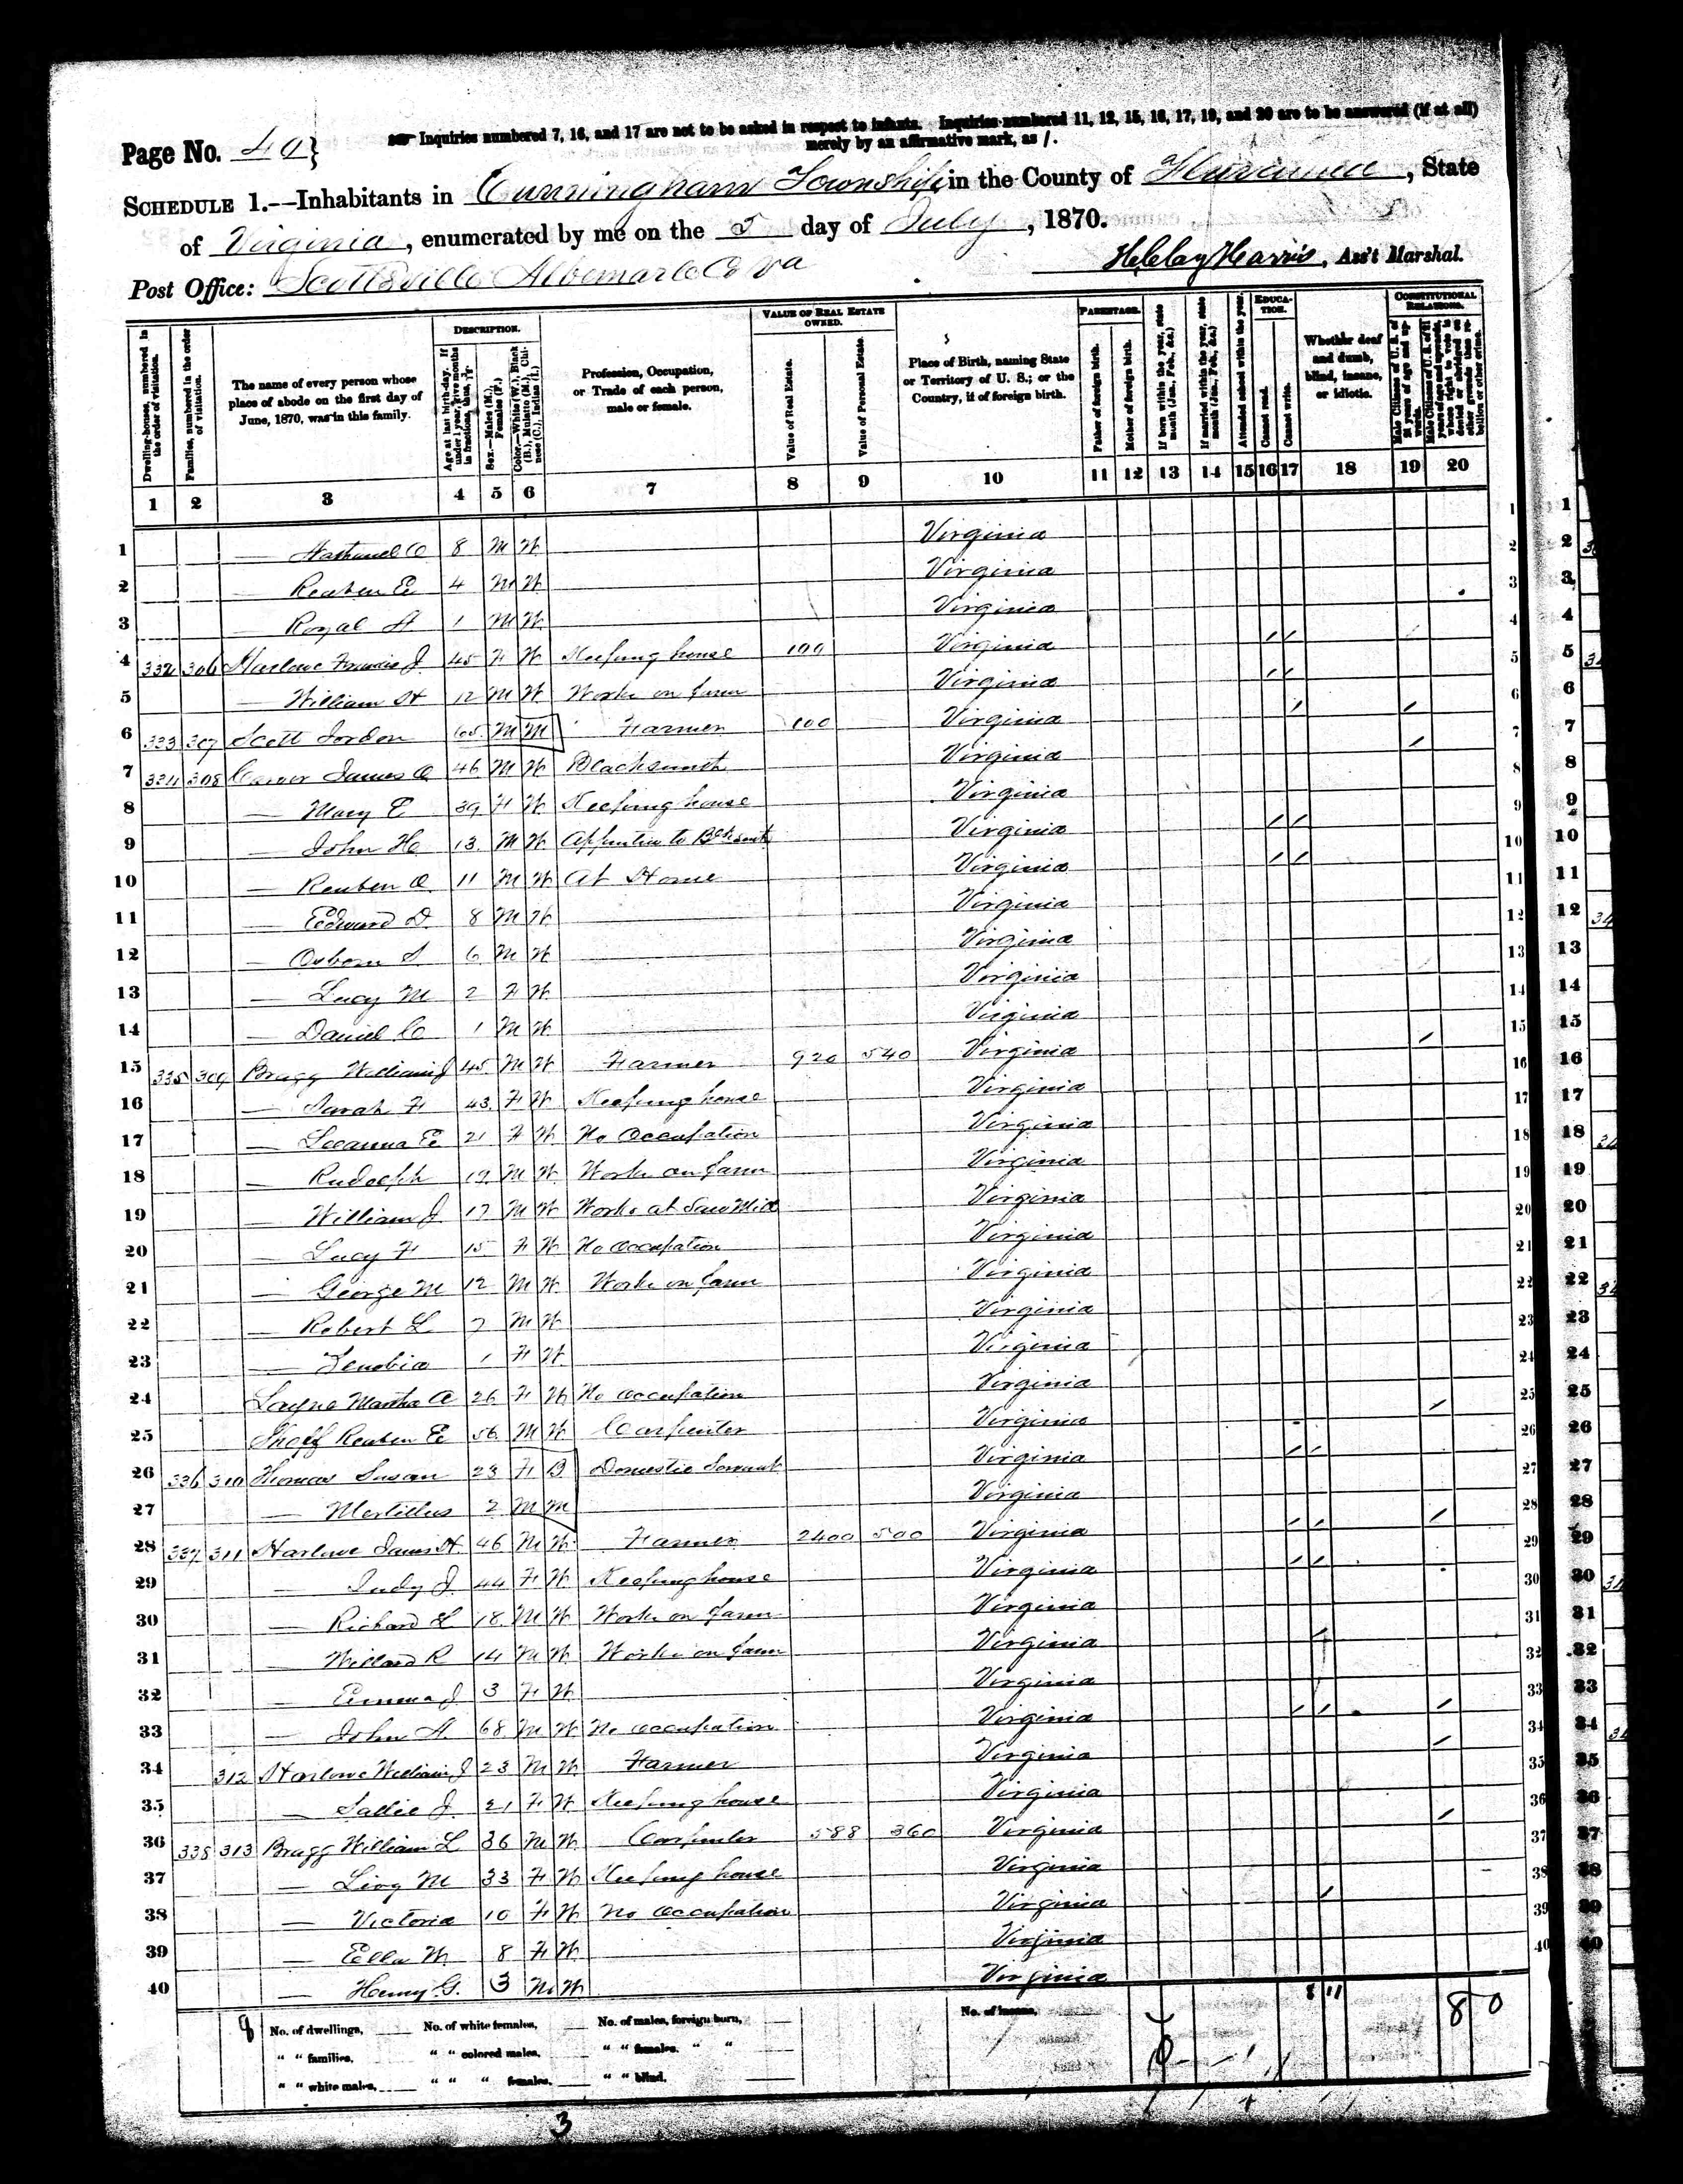 Page No. 40
Inquiries numbered 7, 16, and 17 are not to be asked in respect to infants. Inquiries numbered 11, 12, 15, 16, 17, 19, and 20 are to be answered (if at all)
merely by an affirmative mark, as /.
SCHEDULE 1.—Inhabitants in Cunningham Township, in the County of Fluvanna, State
of Virginia, enumerated by me on the 5 day of July, 1870.
Post Office: Scottsville Albemarle Co Va
H. Clay Harris, Ass't Marshal.
Dwelling-houses, numbered in the order of visitation.
Families, numbered in the order of visitation.
The name of every person whose place of abode on the first day of June, 1870, was in this family.
DESCRIPTION.
Age at last birth-day. If under 1 year, give months in fractions, thus,
Sex.—Males (M.), Females (F.)
Color.—White (W.), Black (B.), Mulatto (M.), Chinese (C.), Indian (I.)
Profession, Occupation, or Trade of each person, male or female.
VALUE OF REAL ESTATE OWNED.
Value of Real Estate.
Value of Personal Estate.
Place of Birth, naming State or Territory of U. S.; or the Country, if of foreign birth.
PARENTAGE.
Father of foreign birth.
Mother of foreign birth.
If born within the year, state month (Jan., Feb., &c.)
If married within the year, state month (Jan., Feb., &c.)
Attended school within the year.
EDUCATION.
Cannot read.
Cannot write.
Whether deaf and dumb, blind, insane, or idiotic.
CONSTITUTIONAL RELATIONS.
Male Citizens of U. S. of 21 years of age and upwards.
Male Citizens of U. S. of 21 years of age and upwards, whose right to vote is denied or abridged on other grounds than rebellion or other crime.
1 2 3 4 5 6 7 8 9 10 11 12 13 14 15 16 17 18 19 20
1 — Nathaniel C 8 M W Virginia
2 — Reuben E 4 M W Virginia
3 — Royal A 1 M W Virginia
4 332 306 Harlowe Francis J 45 F W Keeping house 100 Virginia / /
5 — William H 12 M W Works on farm Virginia / /
6 333 307 Scott Jordon 65 M M Farmer 100 Virginia / /
7 334 308 James O 46 M W Blacksmith Virginia /
8 — Mary E 39 F W Keeping house Virginia
9 — John H 13 M W Virginia / /
10 — Reuben O 11 M W At Home Virginia / /
11 — Edward D 8 M W Virginia
12 — Osborn S 6 M W Virginia
13 — Lucy M 2 F W Virginia
14 — Daniel C 1 M W Virginia
15 335 309 Bragg William J 45 M W Farmer 920 540 Virginia /
16 — Sarah F 43 F W Keeping house Virginia
17 — Leanna E 21 F W No Occupation Virginia
18 — Rudolph 19 M W Works on farm Virginia
19 — William J 17 M W Works at Saw Mill Virginia
20 — Lucy F 15 F W No Occupation Virginia
21 — George M 12 M W Works on farm Virginia
22 — Robert L 7 M W Virginia
23 — Zenobia 1 F W Virginia
24 Layne Martha A 26 F W No occupation Virginia
25 Reuben E 56 M W Carpenter Virginia /
26 336 310 Thomas Susan 23 F B Domestic Servant Virginia / /
27 — 2 M M Virginia
28 337 311 Harlowe James H 46 M W Farmer 2400 500 Virginia / / /
29 — Judy J 44 F W Keeping house Virginia / /
30 — Richard L 18 M W Works on farm Virginia
31 — Willard R 14 M W Works on farm Virginia /
32 — Emma J 3 F W Virginia
33 — John A 68 M W No occupation Virginia / / /
34 312 Harlowe William J 23 M W Farmer Virginia /
35 — Sallie J 21 F W Keeping house Virginia
36 338 313 Bragg William L 36 M W Carpenter 588 360 Virginia /
37 — M 33 F W Keeping house Virginia
38 — Victoria 10 F W No occupation Virginia /
39 — Ella W 8 F W Virginia
40 — Henry G. 3 M W Virginia
No. of dwellings, No. of white females, No. of males, foreign born, No. of insane, 8 11 8 0
" " families, " " colored males, " " females, " "
" " white males, " " " females, " " blind,
3